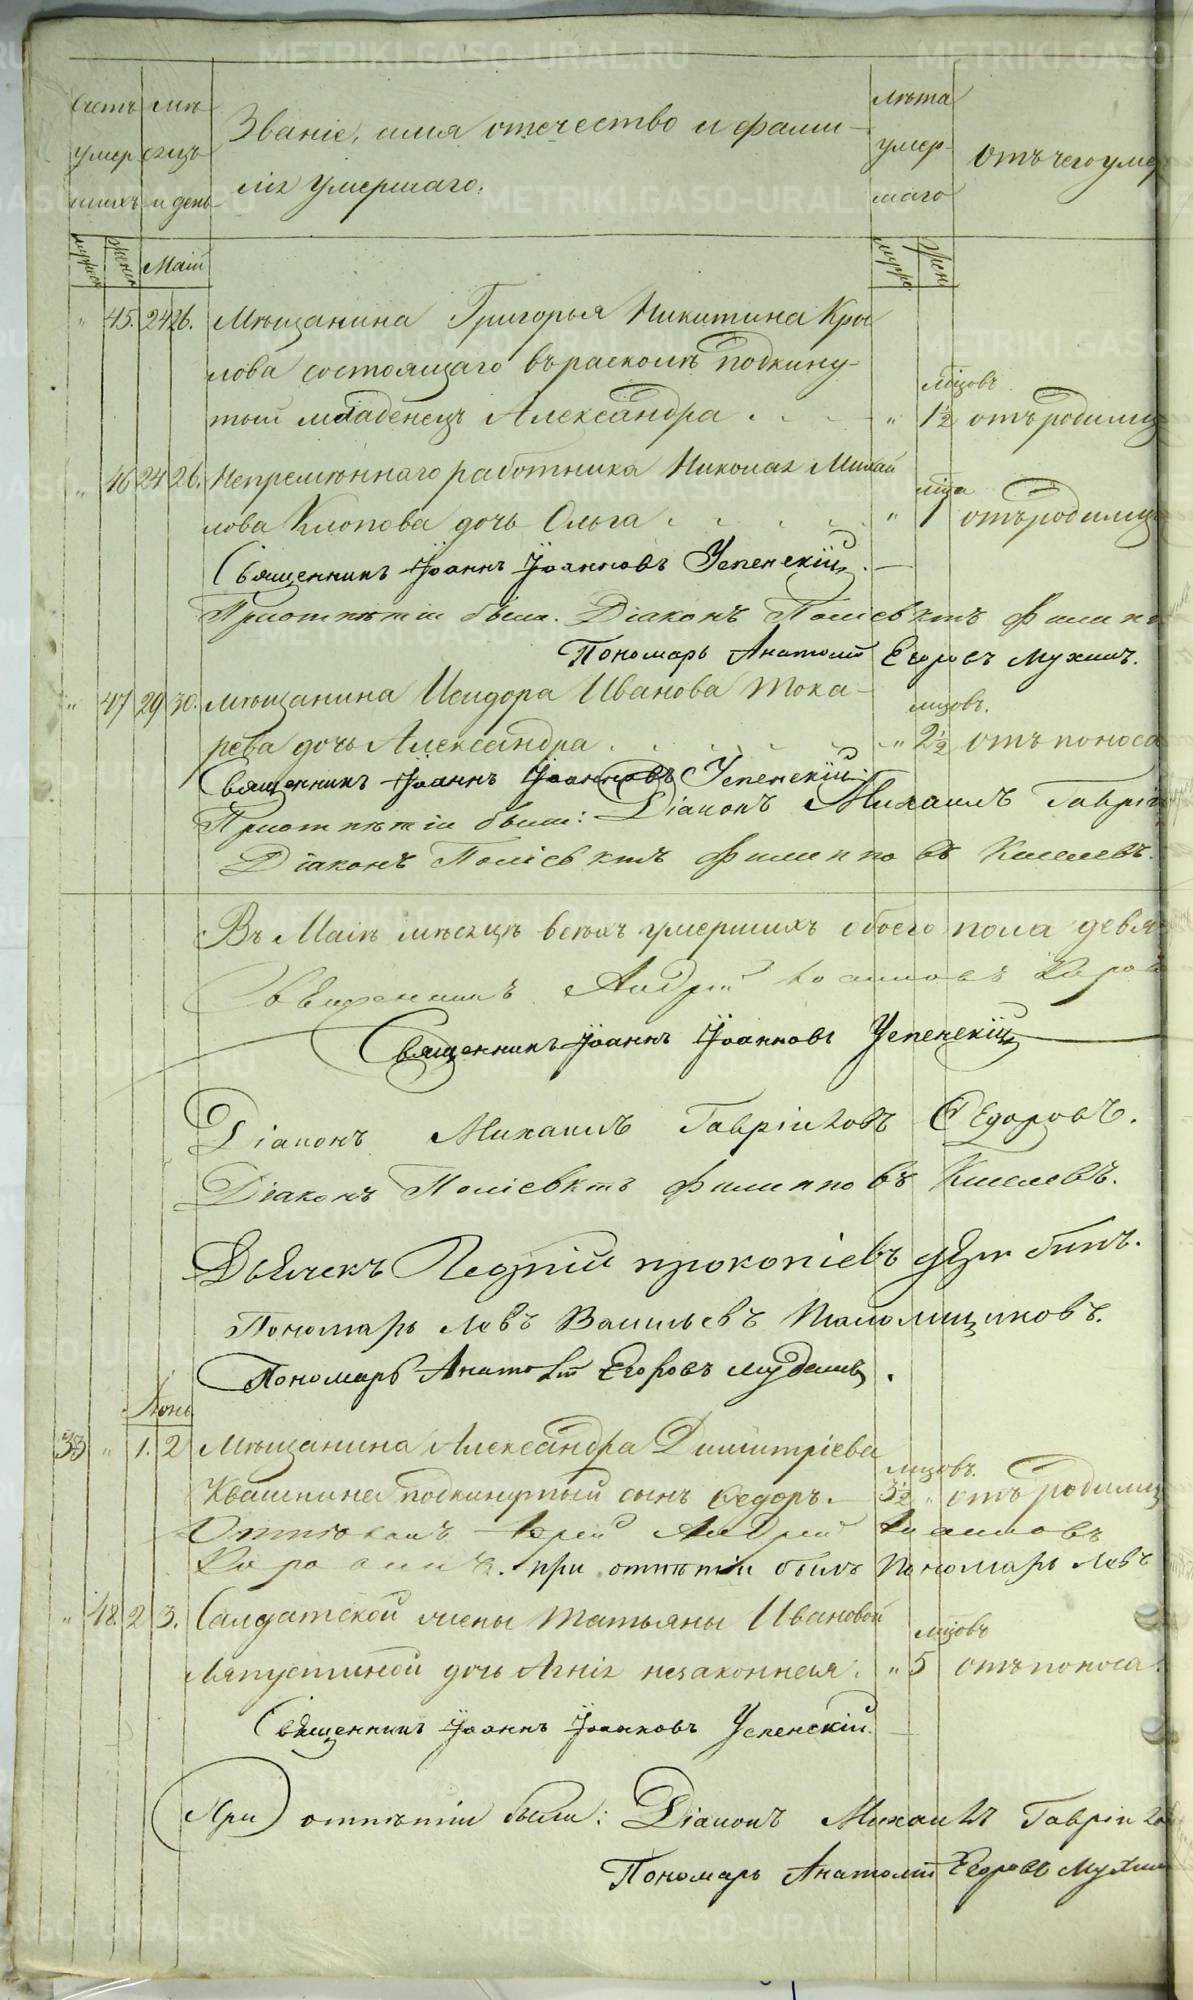 Счетъ мѣ Званіе, имя отечество и фами- лѣта
умер сяцъ лія умершаго. умер- отъ чего умер
шихъ и день шаго
Май
" 45. 24 26. Мѣщанина Григорья Никитина Кры
лова состоящаго въ расколѣ подкину- мцовъ
тый младенецъ Александра " 1½ отъ родимц
" 46 24 26. Непремѣннаго работника Николая Михай мца
лова Клопова дочь Ольга " 1 отъ родимц
Священникъ Іоаннъ Іоанновъ Успенскій.
При отпѣтіи были. Діаконъ Поліевктъ Филипо
Пономарь Анатолій Егоровъ Мухинъ.
" 47 29 30. мѣщанина Исидора Иванова Тока- мцовъ.
рева дочь Александра " 2½ отъ поноса
Священникъ Іоаннъ Іоанновъ Успенскій
При отпѣтіи были: Діаконъ Михаилъ Гаврі
Діаконъ Поліевктъ Филипповъ Киселевъ.
Въ Маіѣ мѣсяцѣ всѣхъ умершихъ обоего пола девя
Священникъ Андрей Іоанновъ
Священникъ Іоаннъ Іоанновъ Успенскій
Діаконъ Михаилъ Гавріиловъ Федоровъ.
Діаконъ Поліевктъ Филипповъ Киселевъ.
Дьячекъ прокопіевъ
Пономарь Левъ Васильевъ
Пономарь Анатолій Егоровъ
Іюнь
33 " 1. 2 Мѣщанина Александра Димитріева мцовъ.
Квашнина подкинутый сынъ Федоръ. 3½ " отъ родимц
Отпѣвалъ Іерей Андрей Іоанновъ
при отпѣтіи былъ Пономарь Левъ
" 48. 2 3. Салдатской жены Татьяны Ивановой мцовъ
Ляпустиной дочь Агнія незаконная. " 5 отъ поноса.
Священникъ Іоаннъ Іоанновъ Успенскій.
При отпѣтіи были: Діаконъ Михаилъ Гавріило
Пономарь Анатолій Егоровъ Мухин
METRIKI.GASO-URAL.RU